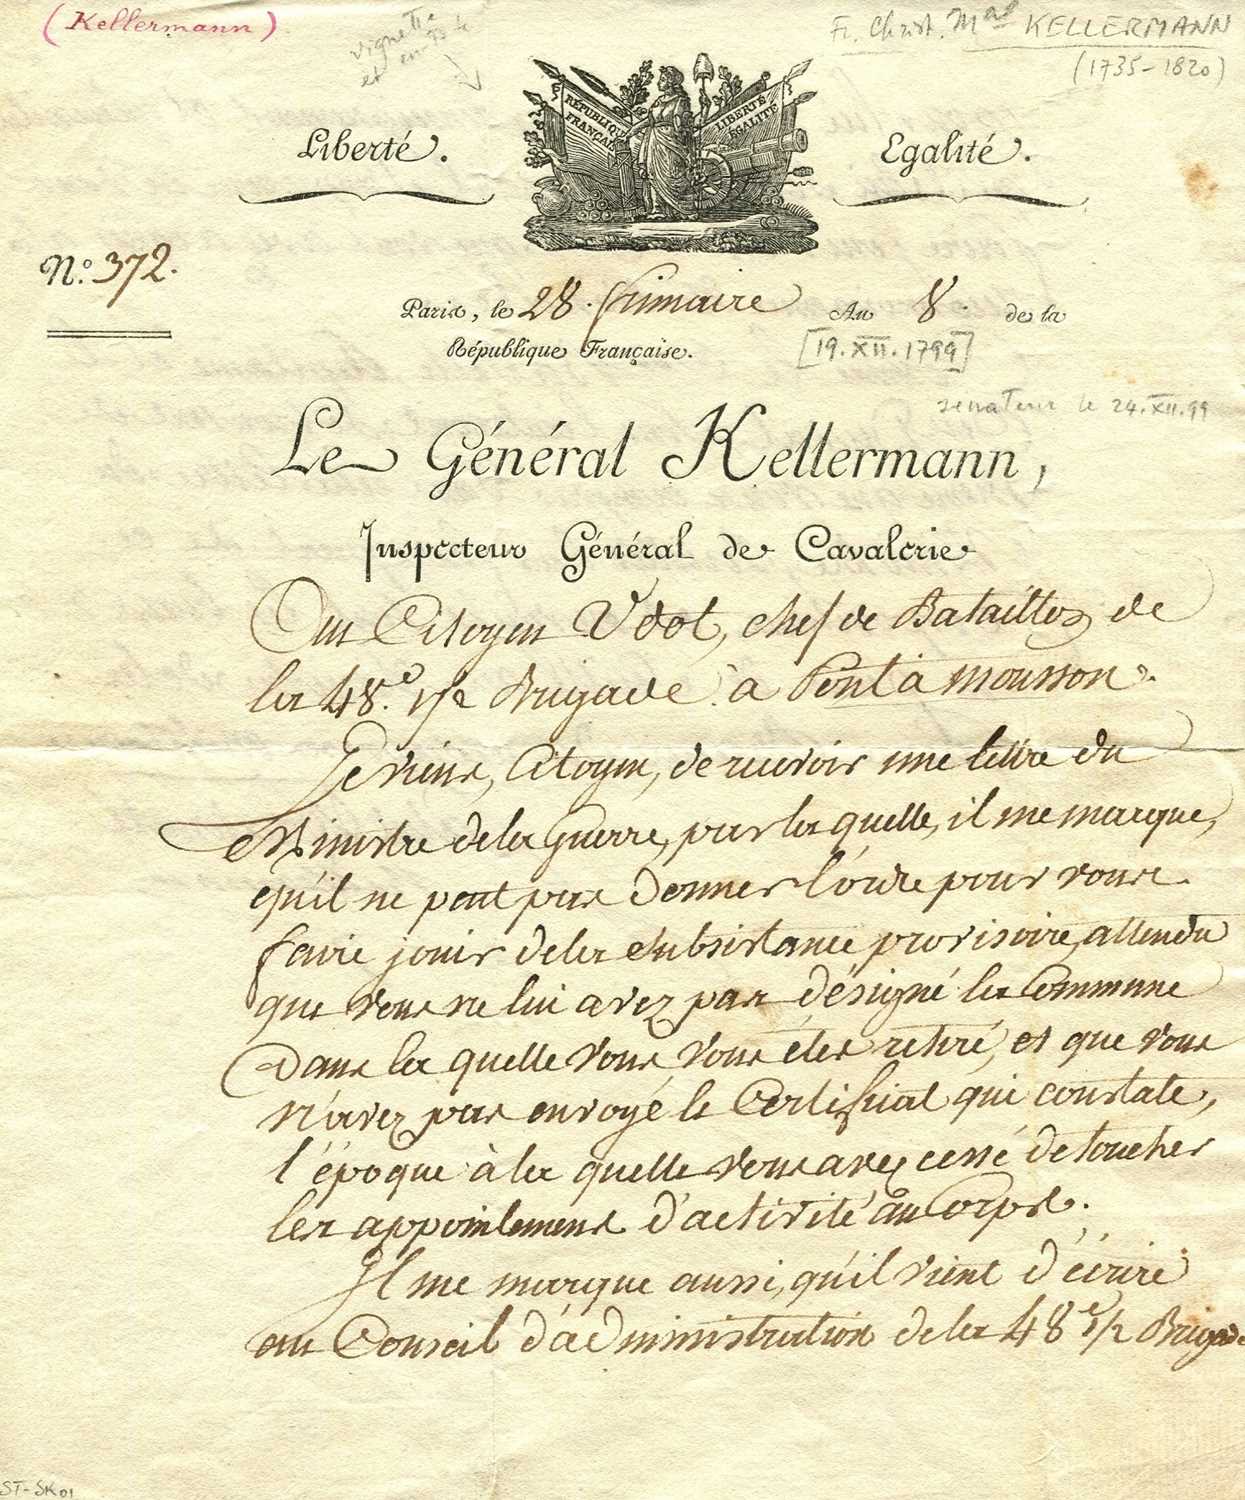 (Kellermann)
Fr. Christ. Mal KELLERMANN
(1735-1820)
vignette
et en-tête
RÉPUBLIQUE
FRANÇAISE
LIBERTÉ
ÉGALITÉ
Liberté. Egalité.
N.° 372.
Paris, le 28. frimaire An 8. de la
République Française.
[19.XII.1799]
sénateur le 24.XII.99
Le Général Kellermann,
Inspecteur Général de Cavalerie
Au Citoyen Udot, chef de Bataillon de
la 48.e 1/2 Brigade à Pont à mousson.
Je viens, Citoyen, de recevoir une lettre du
Ministre de la Guerre, par la quelle, il me marque,
qu'il ne peut pas donner l'ordre pour vous
faire jouir de la subsistance provisoire, attendu
que vous ne lui avez pas désigné la Commune
dans la quelle vous vous étes retiré, et que vous
n'avez pas envoyé le Certificat qui constate,
l'époque à la quelle vous avez cessé de toucher
les appointemens d'activité au Corps.
Il me marque aussi, qu'il vient d'écrire
au Conseil d'administration de la 48e 1/2 Brigade
ST-SK01